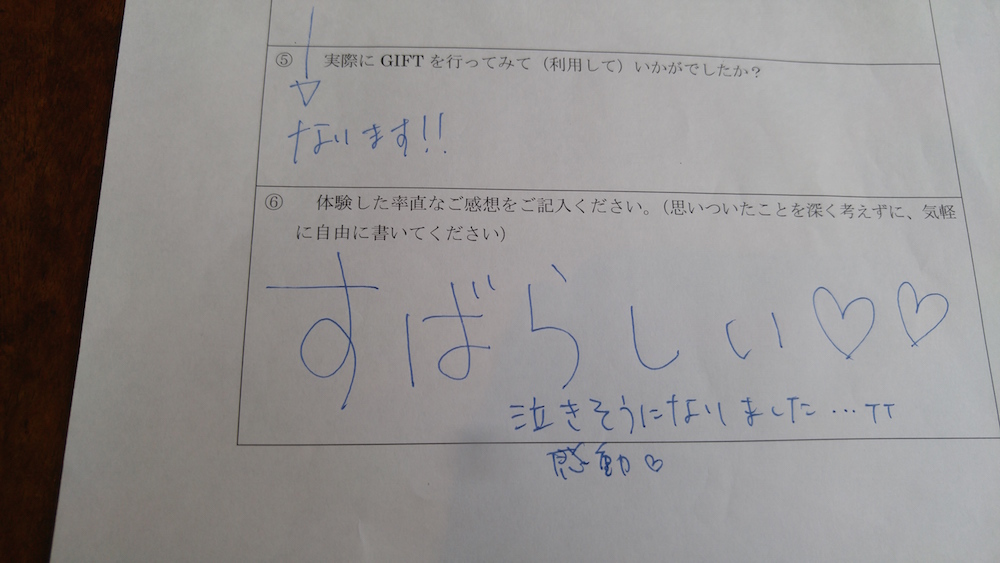 ⑤ 実際に GIFT を行ってみて（利用して）いかがでしたか？
なります!!
⑥ 体験した率直なご感想をご記入ください。（思いついたことを深く考えずに、気軽
に自由に書いてください）
すばらしい♡♡
泣きそうになりました…TT
感動♡